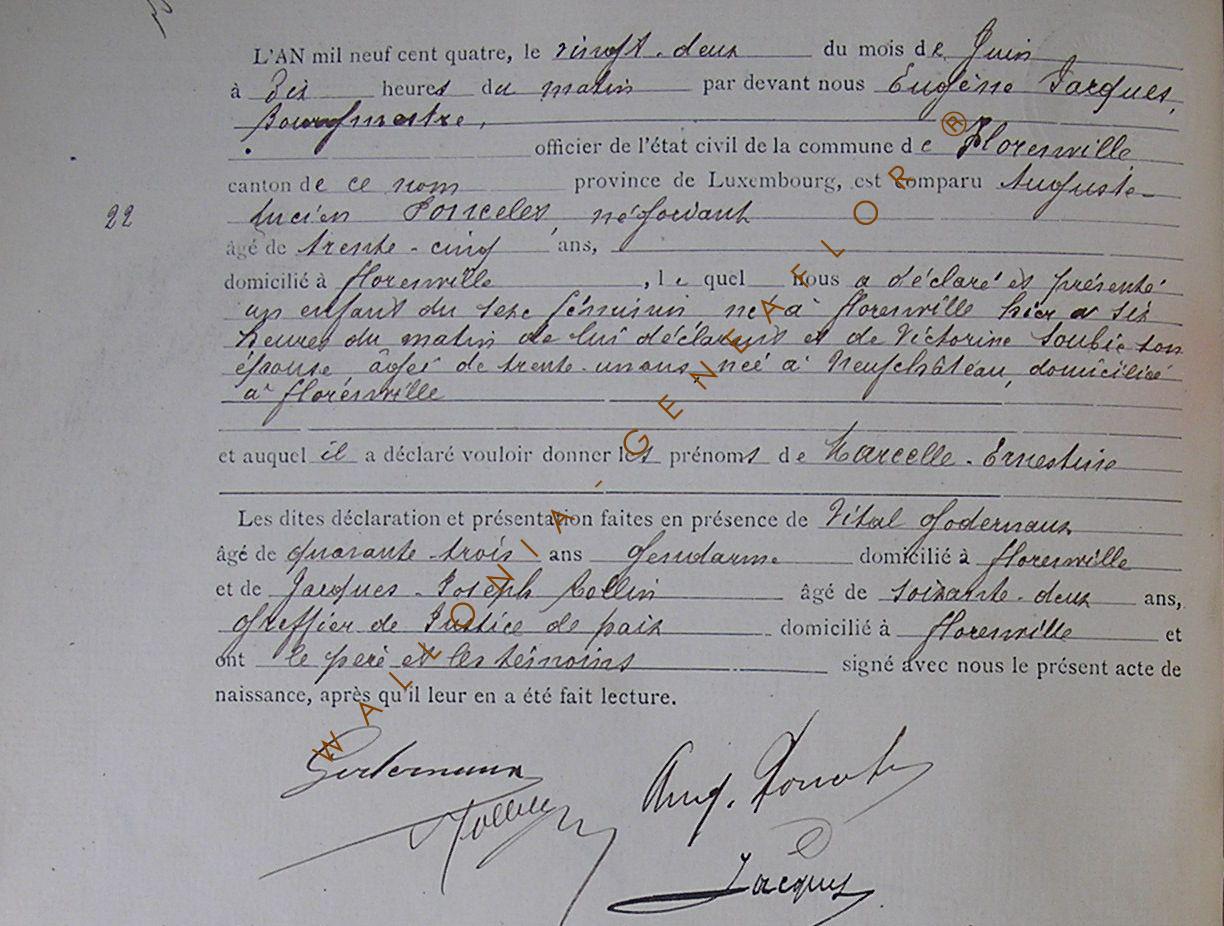 L'AN mil neuf cent quatre, le vingt-deux du mois de Juin
à dix heures du matin par devant nous Eugène Jacques,
Bourgmestre,
officier de l'état civil de la commune de Florenville
canton de ce nom province de Luxembourg, est comparu Auguste-
22 Lucien Poncelet, négociant
âgé de trente-cinq ans,
domicilié à Florenville, lequel nous a déclaré et présenté
un enfant du sexe féminin né à Florenville hier a six
heures du matin de lui déclarant et de Victorine Soubie son
épouse âgée de trente-un ans, née à Neufchâteau, domiciliée
à Florenville
et auquel il a déclaré vouloir donner les prénoms de Marcelle-Ernestine
Les dites déclaration et présentation faites en présence de Vital Godernaux
âgé de quarante-trois ans gendarme domicilié à Florenville
et de Jacques-Joseph Collin âgé de soixante-deux ans,
greffier de Justice de paix domicilié à Florenville et
ont le père et les témoins signé avec nous le présent acte de
naissance, après qu'il leur en a été fait lecture.
Godernaux
Collin
Aug. Poncelet
Jacques
WALLONIA - GENEAFLOR ®